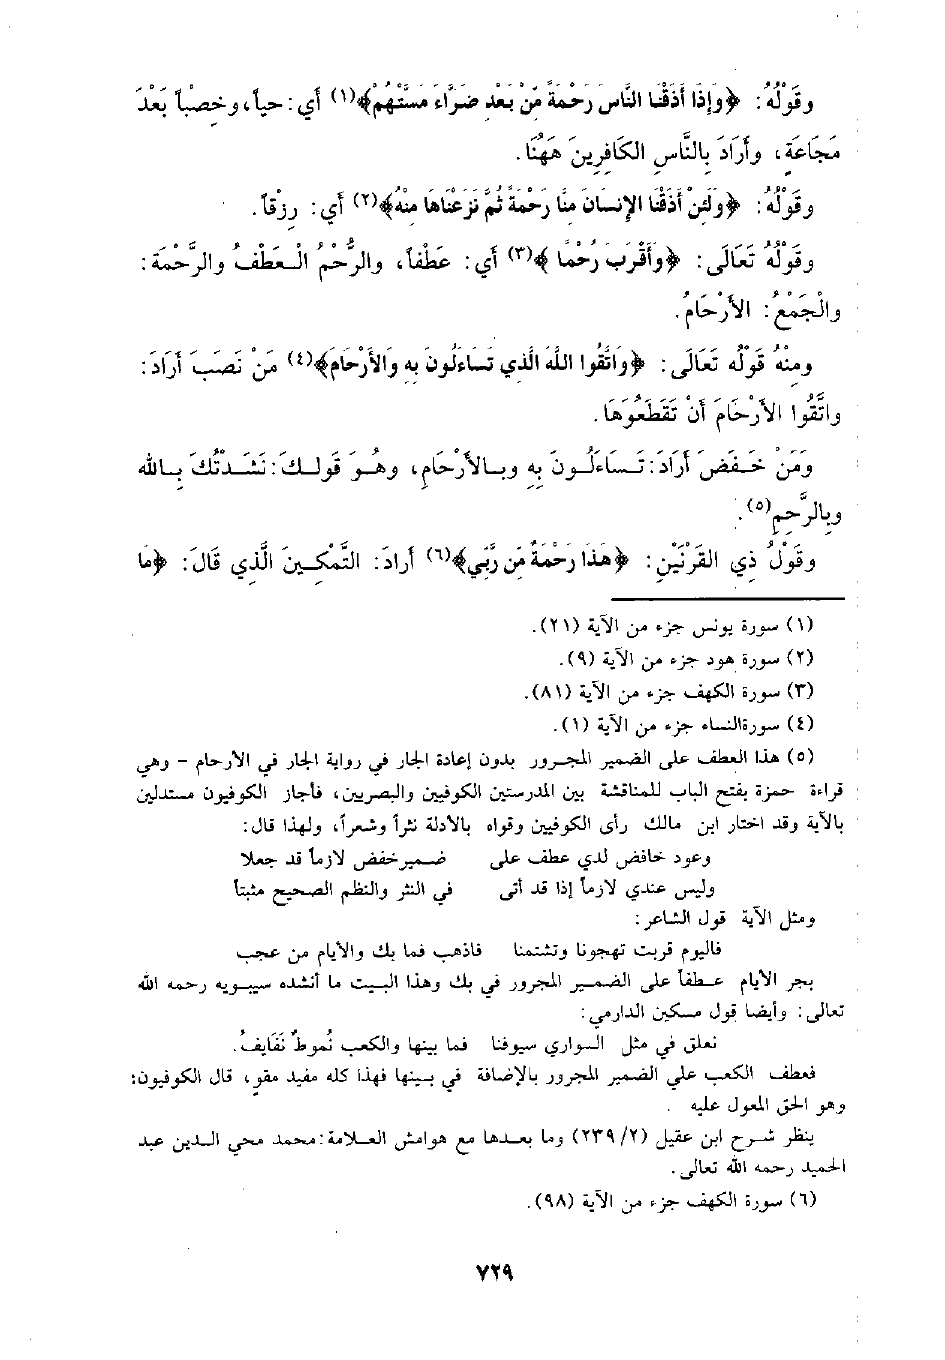 وقَوْلُهُ: ﴿وَإِذَا أَذَقْنَا النَّاسَ رَحْمَةً مِّنْ بَعْدِ ضَرَّاءَ مَسَّتْهُمْ﴾(١) أي: حياً، وخِصْباً بَعْدَ
مَجَاعَةٍ، وأَرَادَ بِالنَّاسِ الكَافِرِينَ هَهُنَا.
وقَوْلُهُ: ﴿وَلَئِنْ أَذَقْنَا الإِنسَانَ مِنَّا رَحْمَةً ثُمَّ نَزَعْنَاهَا مِنْهُ﴾(٢) أي: رِزْقاً.
وقَوْلُهُ تَعَالَى: ﴿وَأَقْرَبَ رُحْمًا﴾(٣) أي: عَطْفاً، والرُّحْمُ الْعَطْفُ والرَّحْمَةُ:
والْجَمْعُ: الأَرْحَامُ.
ومِنْهُ قَوْلُه تَعَالَى: ﴿وَاتَّقُوا اللهَ الَّذِي تَسَاءَلُونَ بِهِ وَالأَرْحَامَ﴾(٤) مَنْ نَصَبَ أَرَادَ:
واتَّقُوا الأَرْحَامَ أَنْ تَقْطَعُوهَا.
ومَنْ خَفَضَ أَرَادَ: تَسَاءَلُونَ بِهِ وبالأَرْحَامِ، وهُوَ قَولكَ: نَشَدْتُكَ بالله
وبِالرَّحِمِ(٥).
وقَوْلُ ذِي القَرْنَيْنِ: ﴿هَذَا رَحْمَةٌ مِّن رَّبِّي﴾(٦) أَرادَ: التَّمْكِينَ الَّذِي قَالَ: ﴿مَا
(١) سورة يونس جزء من الآية (٢١).
(٢) سورة هود جزء من الآية (٩).
(٣) سورة الكهف جزء من الآية (٨١).
(٤) سورة النساء جزء من الآية (١).
(٥) هذا العطف على الضمير المجرور بدون إعادة الجار في رواية الجار في الأرحام - وهي
قراءة حمزة يفتح الباب للمناقشة بين المدرستين الكوفيين والبصريين، فأجاز الكوفيون مستدلين
بالآية وقد اختار ابن مالك رأى الكوفيين وقواه بالأدلة نثراً وشعراً، ولهذا قال:
وعود خافض لدي عطف على ضمير خفض لازماً قد جعلا
وليس عندي لازماً إذا قد أتى في النثر والنظم الصحيح مثبتاً
ومثل الآية قول الشاعر:
فاليوم قربت تهجونا وتشتمنا فاذهب فما بك والأيام من عجب
بجر الأيام عطفاً على الضمير المجرور في بك وهذا البيت ما أنشده سيبويه رحمه الله
تعالى: وأيضا قول مسكين الدارمي:
نعلق في مثل السواري سيوفنا فما بينها والكعب نُموطٌ نَفَايفُ.
فعطف الكعب علي الضمير المجرور بالإضافة في بينها فهذا كله مفيد مقوٍ، قال الكوفيون:
وهو الحق المعول عليه .
ينظر شرح ابن عقيل (٢٣٩/٢) وما بعدها مع هوامش العلامة: محمد محي الدين عبد
الحميد رحمه الله تعالى.
(٦) سورة الكهف جزء من الآية (٩٨).
٧٢٩